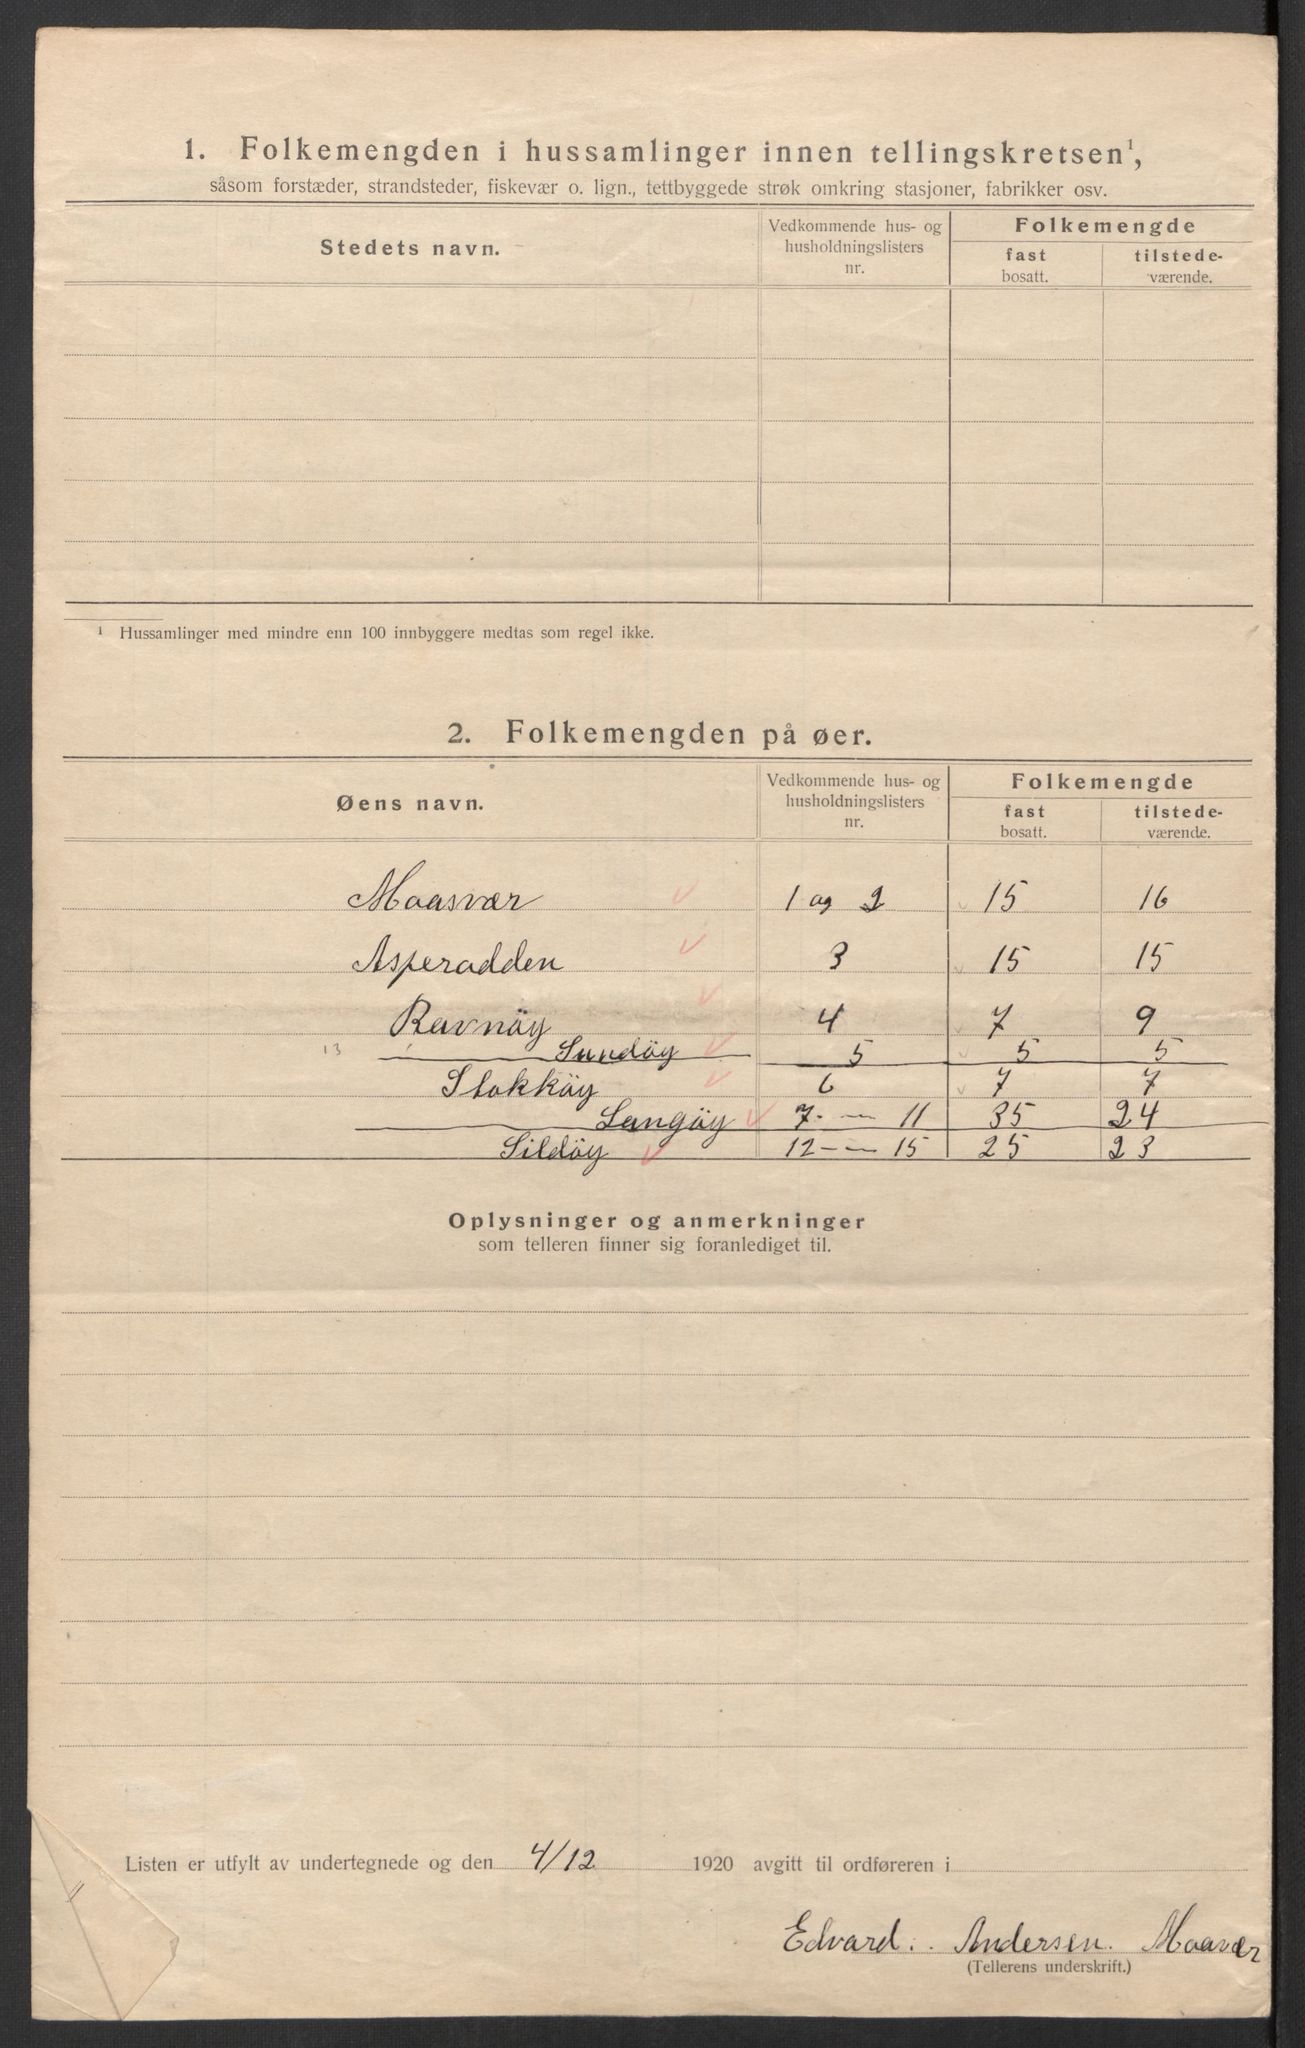 1. Folkemengden i hussamlinger innen tellingskretsen¹,
såsom forstæder, strandsteder, fiskevær o. lign., tettbyggede strøk omkring stasjoner, fabrikker osv.
Stedets navn.
Vedkommende hus- og husholdningslisters nr.
Folkemengde
fast bosatt.
tilstede-værende.
¹ Hussamlinger med mindre enn 100 innbyggere medtas som regel ikke.
2. Folkemengden på øer.
Øens navn.
Vedkommende hus- og husholdningslisters nr.
Folkemengde
fast bosatt.
tilstede-værende.
Maasvær 1 og 2 15 16
Asperadden 3 15 15
Ravnöy 4 7 9
13 Sundöy 5 5 5
Stokköy 6 7 7
Langöy 7 - — 11 35 24
Sildöy 12 - — 15 25 23
Oplysninger og anmerkninger
som telleren finner sig foranlediget til.
Listen er utfylt av undertegnede og den 4/12 1920 avgitt til ordføreren i
Edvard. Andersen. Maavær
(Tellerens underskrift.)